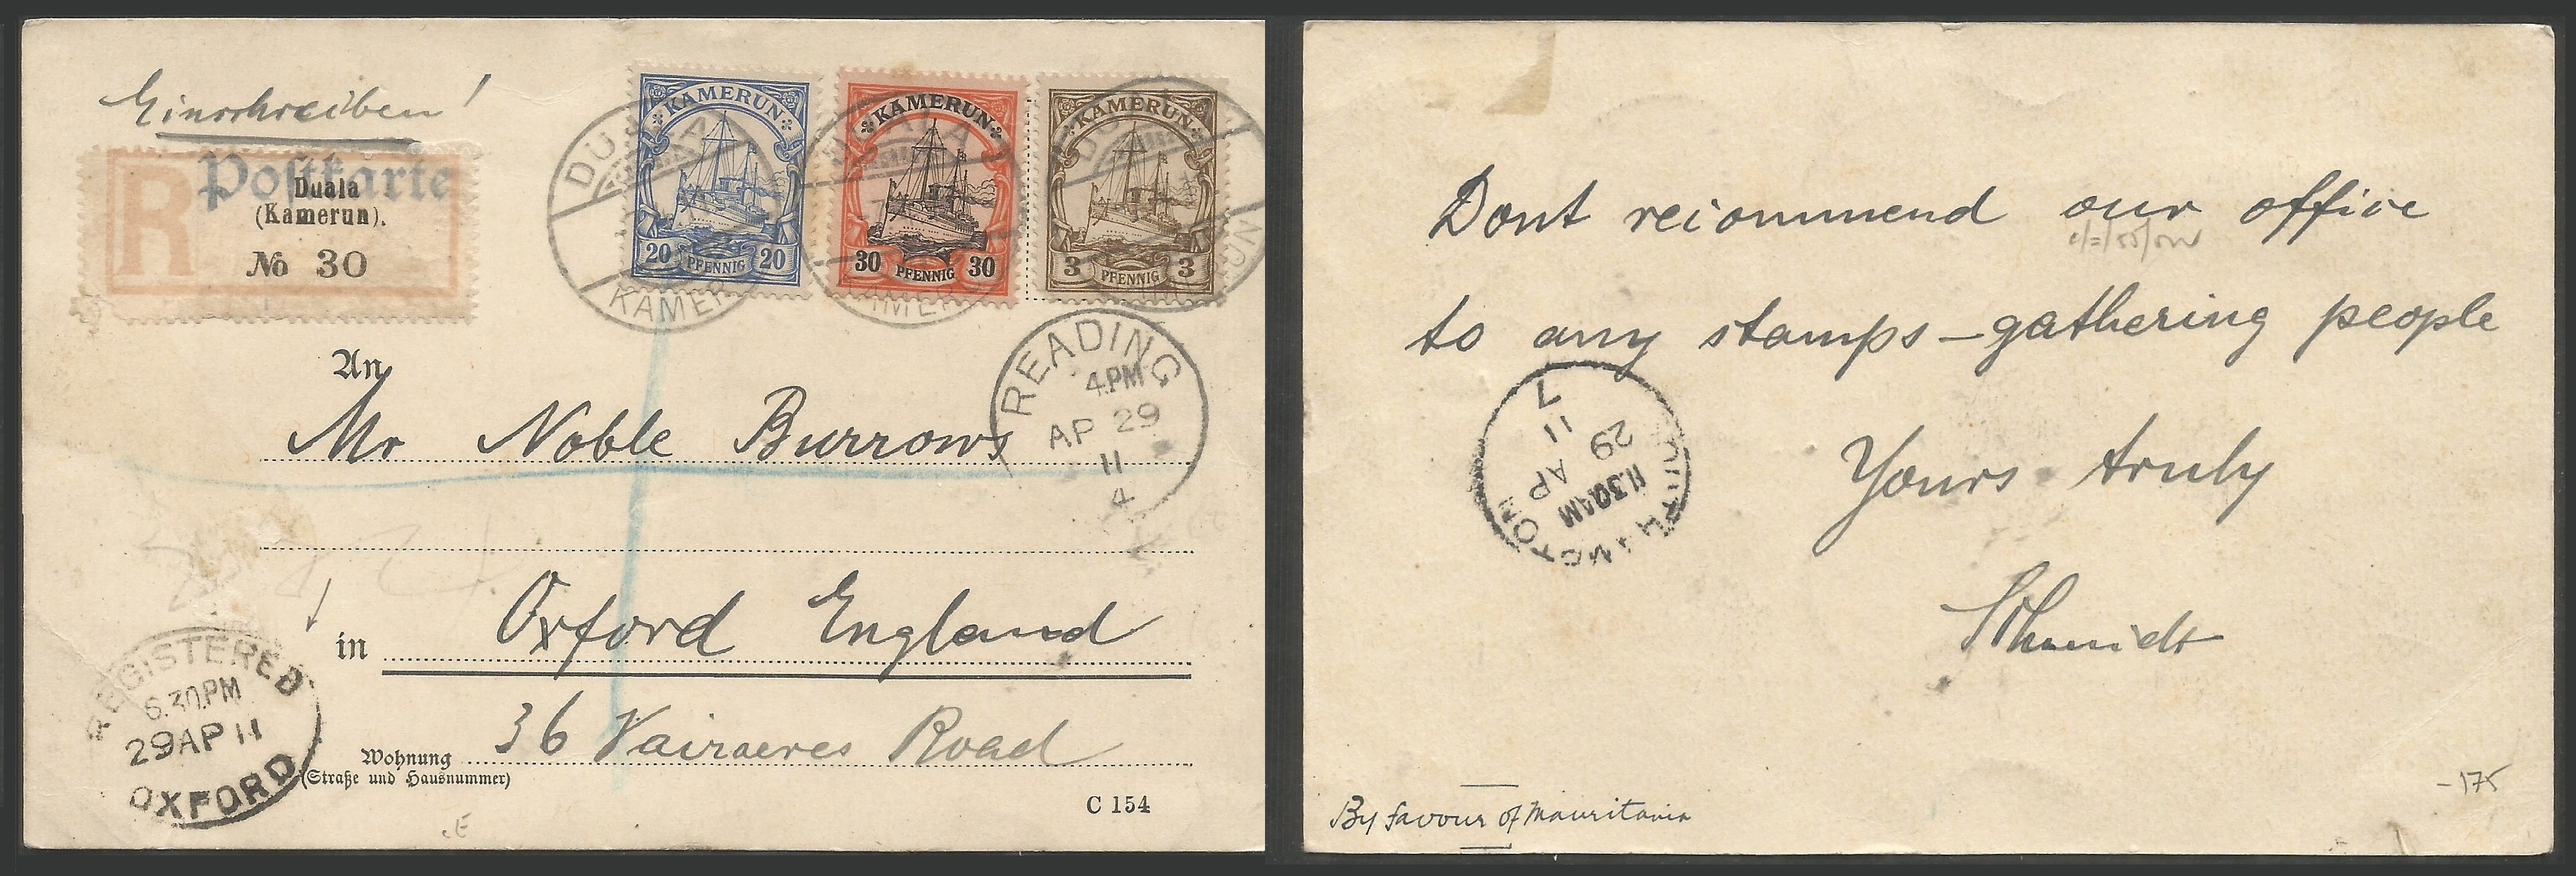 Einschreiben!
Postkarte
R
Duala
(Kamerun).
No 30
KAMERUN
20 PFENNIG 20
KAMERUN
30 PFENNIG 30
KAMERUN
3 PFENNIG 3
DUALA
KAMERUN
READING
4.PM
AP 29
11
4
An
Mr Noble Burrows
in Oxford England
Wohnung 36 Vairacres Road
(Straße und Hausnummer)
C 154
REGISTERED
6.30.PM
29 AP 11
OXFORD
Dont recommend our office
to any stamps-gathering people
Yours truly
Schmidt
11.30AM
29 AP
11
7
By favour of Mauritania
-175